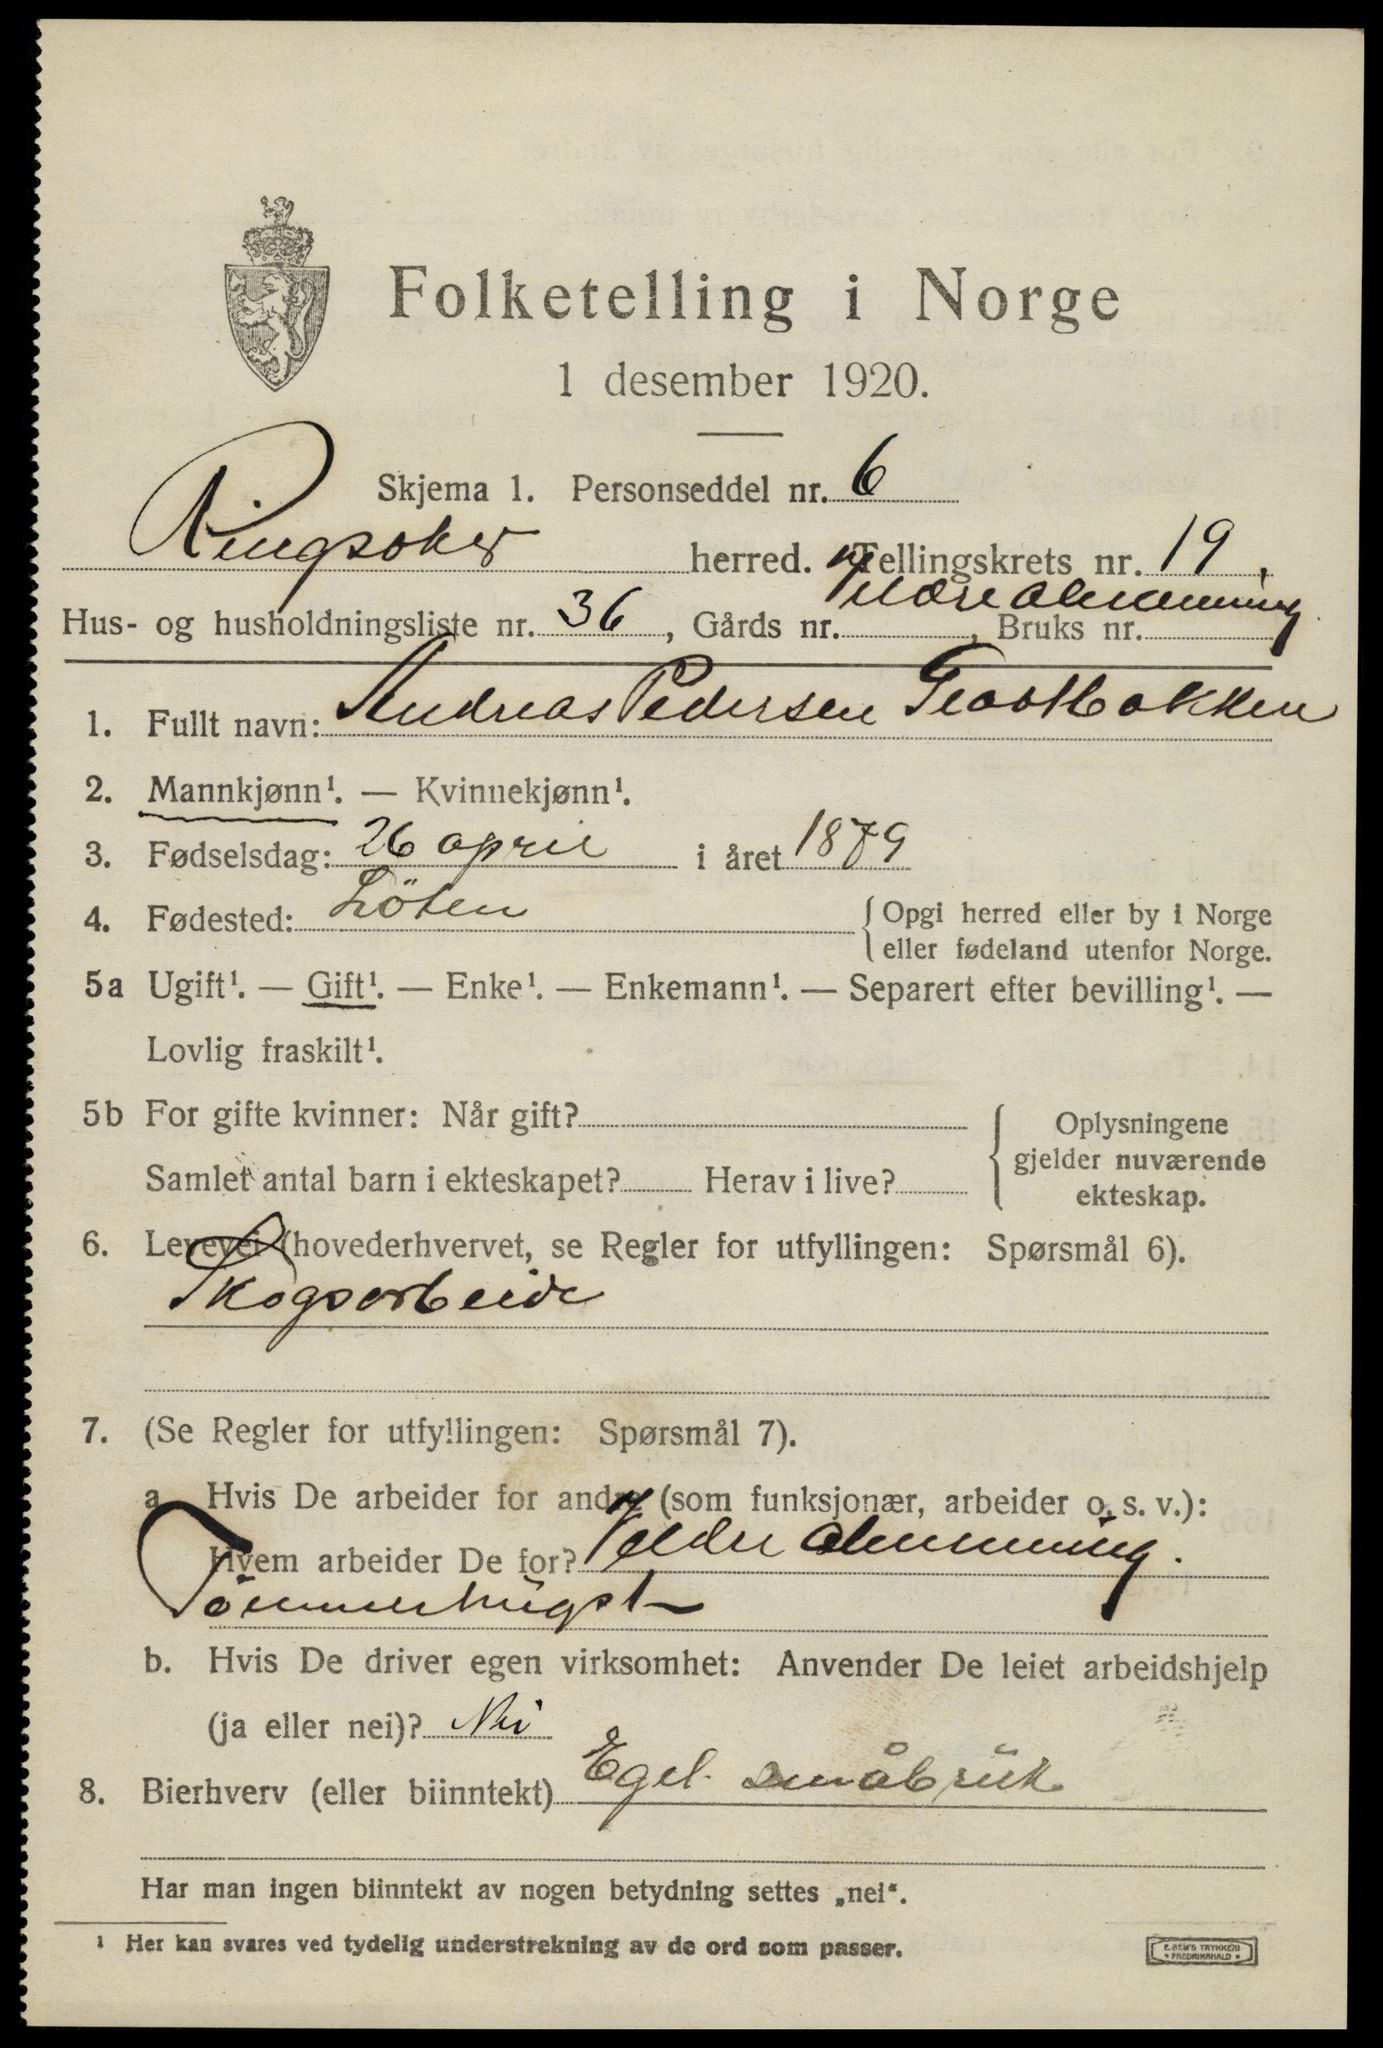 Folketelling i Norge
1 desember 1920.
Skjema 1. Personseddel nr. 6
Ringsaker herred. Tellingskrets nr. 19.
Veldre almenning
Hus- og husholdningsliste nr. 36, Gårds nr. , Bruks nr.
1. Fullt navn: Andreas Pedersen
2. Mannkjønn¹. — Kvinnekjønn¹.
3. Fødselsdag: 26 april i året 1879
4. Fødested: Löten {Opgi herred eller by i Norge
eller fødeland utenfor Norge.
5a Ugift¹. — Gift¹. — Enke¹. — Enkemann¹. — Separert efter bevilling¹. —
Lovlig fraskilt¹.
5b For gifte kvinner: Når gift?
Samlet antal barn i ekteskapet? Herav i live?
Oplysningene
gjelder nuværende
ekteskap.
6. Levevei (hovederhvervet, se Regler for utfyllingen: Spørsmål 6).
Skogsarbeide
7. (Se Regler for utfyllingen: Spørsmål 7).
a Hvis De arbeider for andre (som funksjonær, arbeider o. s. v.):
Hvem arbeider De for? Veldre almenning.
Tömmerhugst
b. Hvis De driver egen virksomhet: Anvender De leiet arbeidshjelp
(ja eller nei)? Nei
8. Bierhverv (eller biinntekt) Eget småbrük
Har man ingen biinntekt av nogen betydning settes „nei“.
¹ Her kan svares ved tydelig understrekning av de ord som passer.
E. SEM'S TRYKKERI
• FREDRIKSHALD •